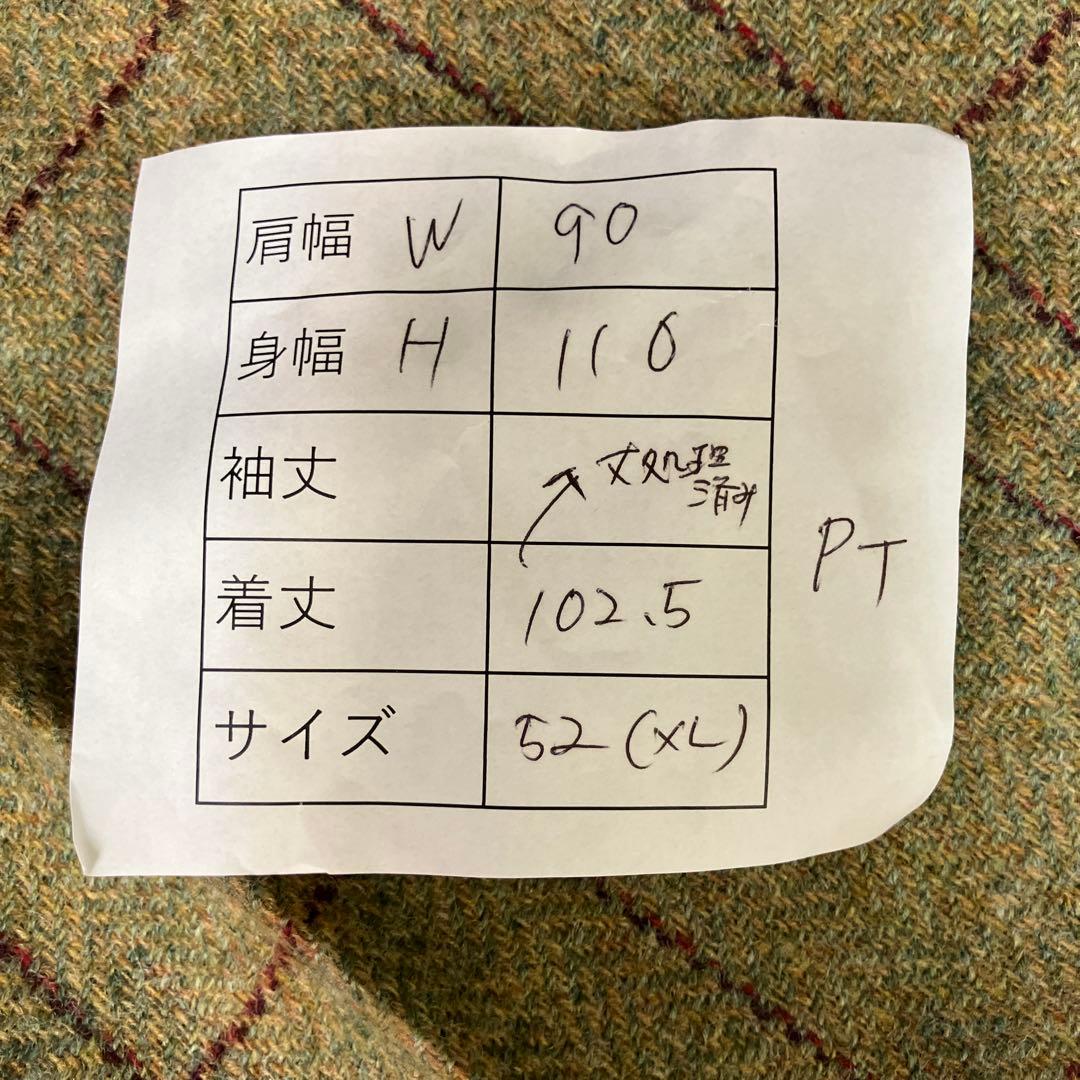 肩幅 W 90
身幅 H 110
袖丈 丈処理
済み
着丈 102.5
サイズ 52 (XL)
PT